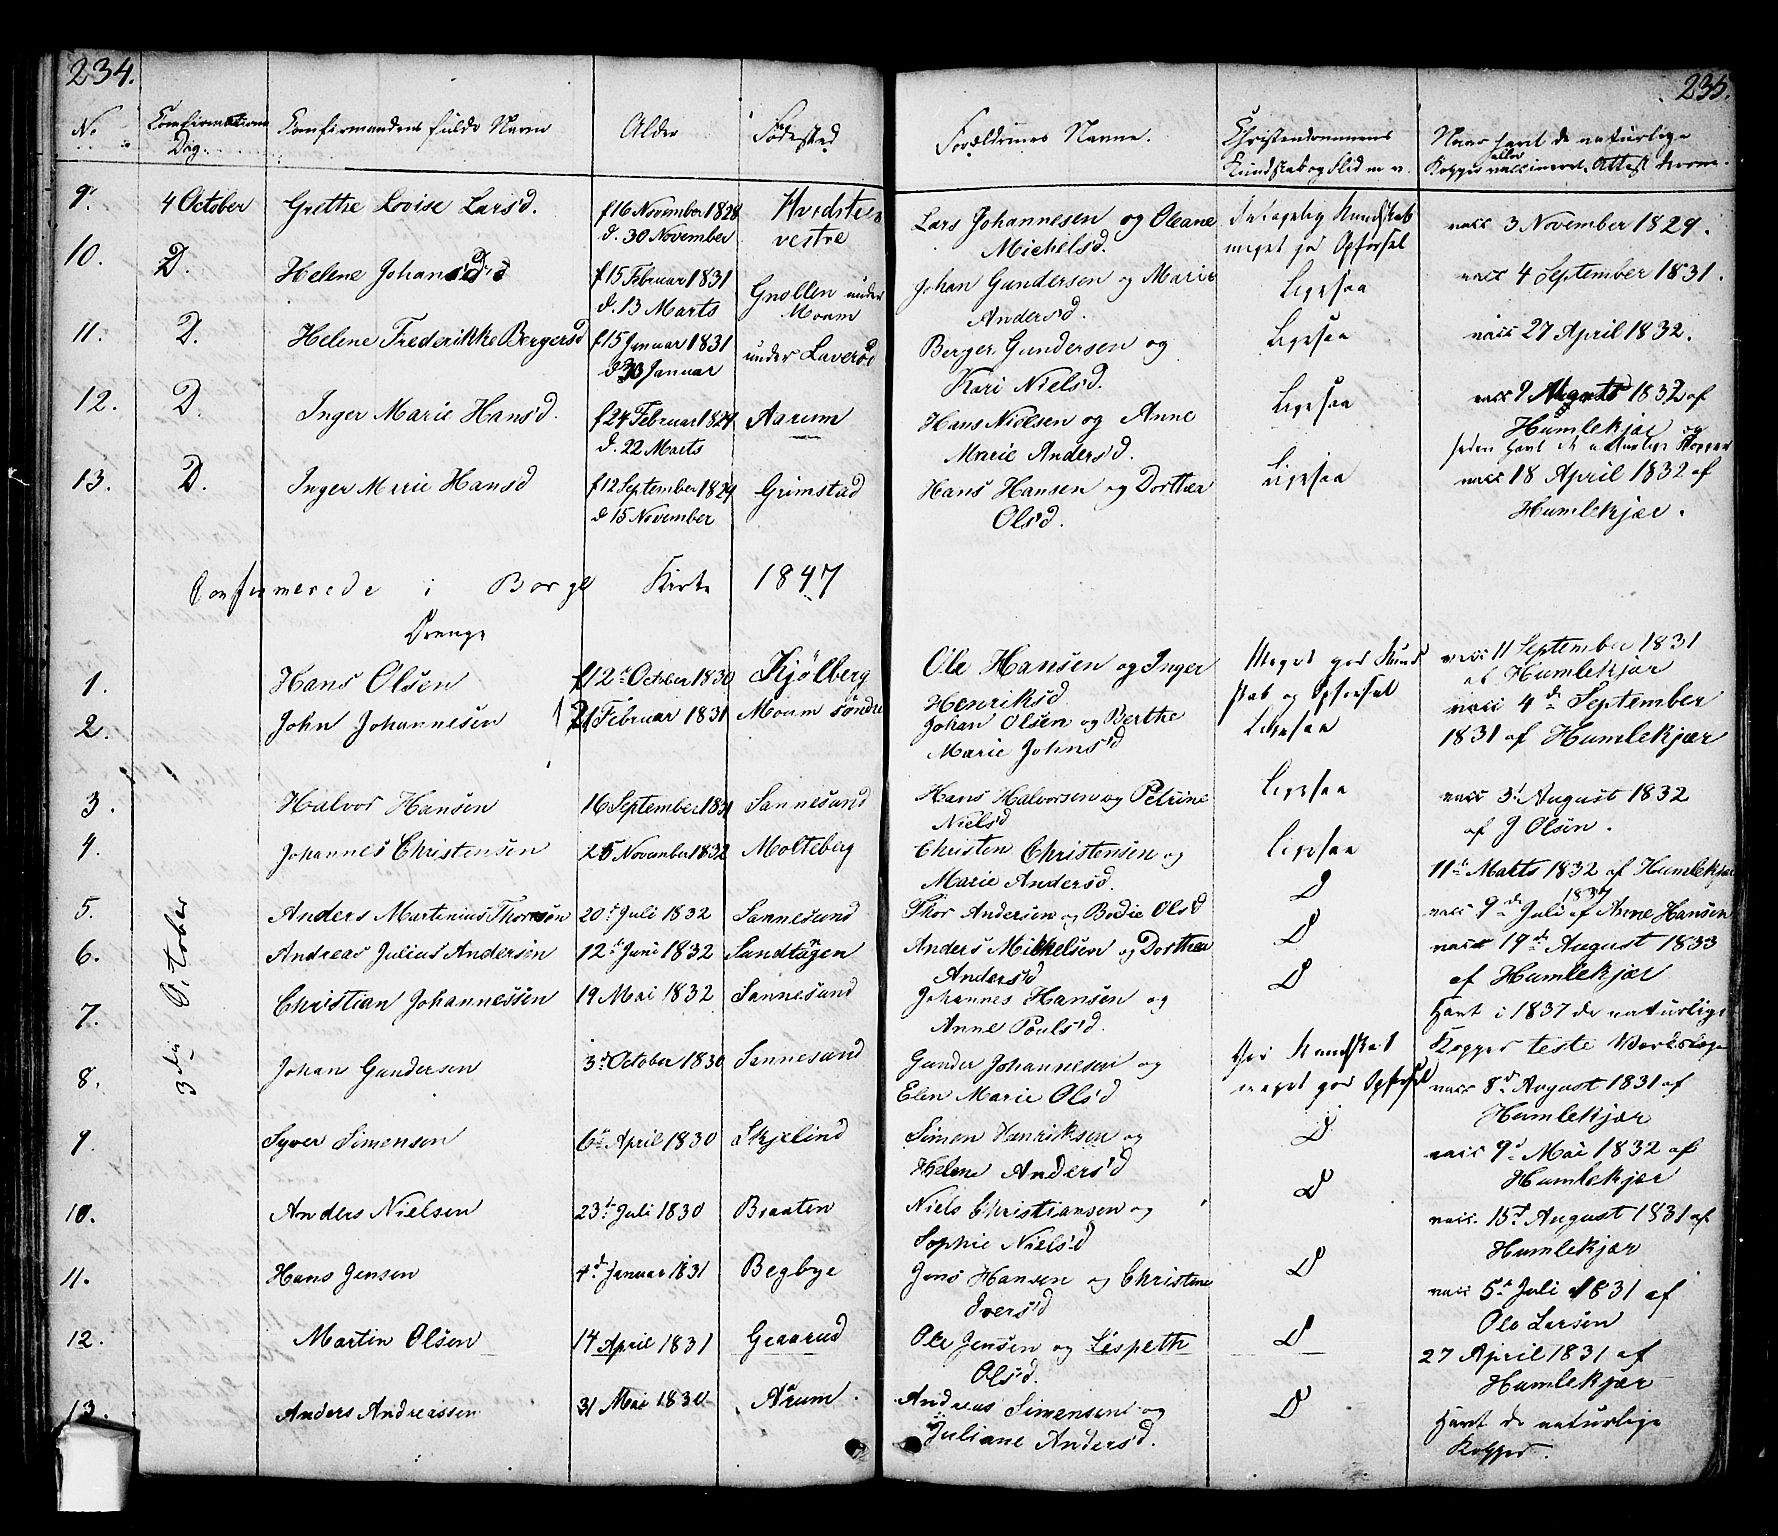 234.
235.
No Confirmations Dag. Confirmandens fulde Navn Alder Fødested Forældrenes Navne. Christendommens Kundskab og Flid m. v. Naar havt de naturlige Kopper eller vaccineret, Attest herom.
9. 4 October Grethe Lovise Larsd. f 16 November 1828 Hvidsteen Lars Johannesen og Oleane vacc 3 November 1829.
d. 30 November vestre Michelsd. meget god Opførsel
10. D. Helene Johansd f 15 Februar 1831 Gnollen under Johan Gundersen og Marie Ligesaa vacc 4 September 1831.
d. 13 Marts Moum Andersd.
11. D. Helene Frederikke Bergersd f 15 Januar 1831 under Laverød Berger Gundersen og Ligesaa vacc 27 April 1832.
d 30 Januar Kari Nielsd.
12. D. Inger Marie Hansd. f 24 Februar 1829 Aarum Hans Nielsen og Anne Ligesaa vacc 9 1832 af
d. 22 Marts Marie Andersd. Humlekjær og
siden havt de naturlige Kopper
13. D. Inger Marie Hansd f 12 September 1829 Grimstad Hans Hansen og Dorthea Ligesaa vacc 18 April 1832 af
d 15 November Olsd. Humlekjær.
Confirmerede i Borge Kirke 1847
Drenge
3die October
1. Hans Olsen f 12te October 1830 Kjølberg Ole Hansen og Inger Meget god Kund vacc 11 September 1831
Henriksd. skab og Opførsel af Humlekjær
2. John Johannesen 21 Februar 1831 Moum søndre Johan Olsen og Berthe Ligesaa vacc 4de September
Marie Johnsd 1831 af Humlekjær
3. Halvor Hansen 16 September 1831 Sannesund Hans Halvorsen og Petrine Ligesaa vacc 3d August 1832
Nielsd af J Olsen.
4. Johannes Christensen 25 November 1832 Molteberg Christen Christensen og Ligesaa 11te Marts 1832 af Humlekjær
Marie Andersd.
5. Anders Martinius Thorsen 20de Juli 1832 Sannesund Thor Andersen og Bodie Olsd D vacc 9de Juli 1834 af Arne Hansen
6. Andreas Julius Andersen 12te Juni 1832 Sandtagen Anders Mikkelsen og Dorthea D vacc 19de August 1833
Andersd af Humlekjær
7. Christian Johannessen 19 Mai 1832 Sannesund Johannes Hansen og D Havt i 1837 de naturlige
Anne Poulsd. Kopper teste
8. Johan Gundersen 3d October 1830 Sannesund Gunder Johannesen og God Kundskab vacc 8de August 1831 af
Elen Marie Olsd meget god Opførsel Humlekjær
9. Syver Simensen 6te April 1830 Skjelind Simen Henriksen og D vacc 9d Mai 1832 af
Helene Andersd Humlekjær
10. Anders Nielsen 23de Juli 1830 Braaten Niels Christiansen og D vacc. 15d August 1831 af
Sophie Nielsd Humlekjær
11. Hans Jensen 4de Januar 1831 Begbye Jens Hansen og Christine D vacc 5te Juli 1831 af
Iversd Ole Larsen
12. Martin Olsen 14 April 1831 Graarud Ole Jensen og Lispeth D 27 April 1831 af
Olsd. Humlekjær
13. Anders Andreassen 31 Mai 1830 Arum. Andreas Simensen og D Havt de naturlige
Juliane Andersd. Kopper.